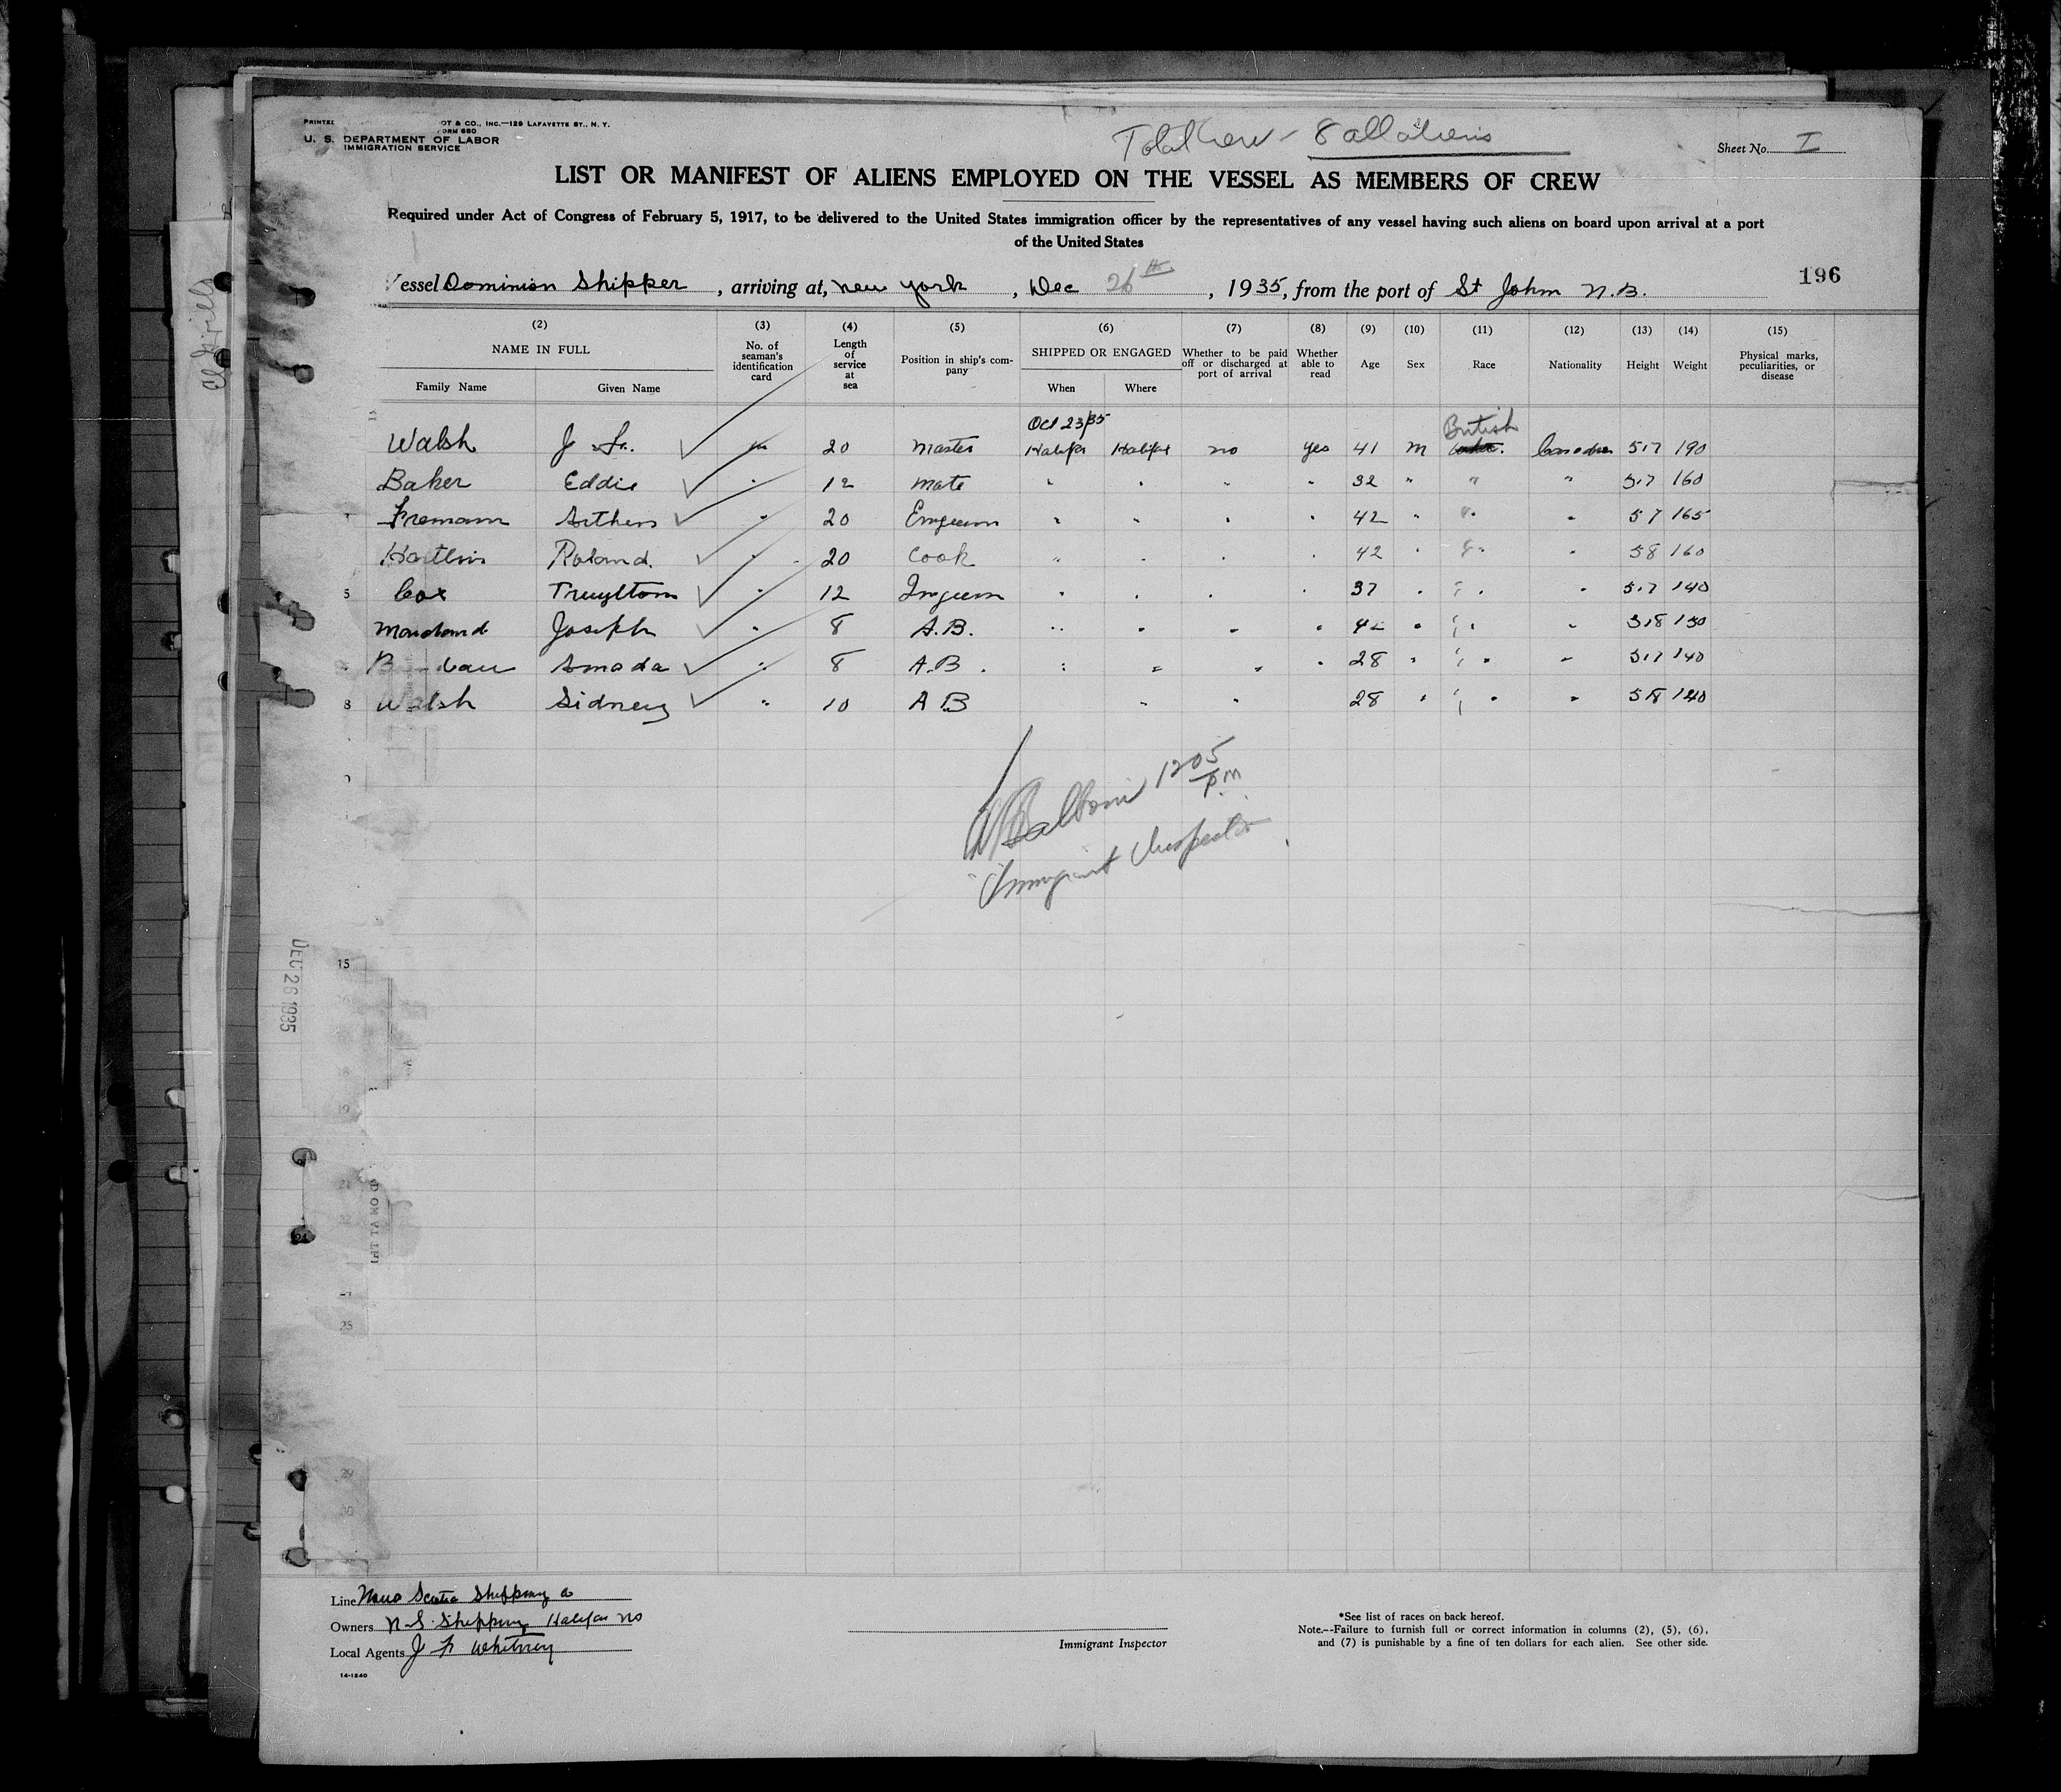 PRINTED OT & CO., INC.—129 LAFAYETTE ST., N. Y.
FORM 680
U. S. DEPARTMENT OF LABOR
IMMIGRATION SERVICE
Total Crew - 8 all aliens
Sheet No. I
LIST OR MANIFEST OF ALIENS EMPLOYED ON THE VESSEL AS MEMBERS OF CREW
Required under Act of Congress of February 5, 1917, to be delivered to the United States immigration officer by the representatives of any vessel having such aliens on board upon arrival at a port
of the United States
196
Vessel Dominion Shipper, arriving at, new york, Dec 26th, 1935, from the port of St John N.B.
(2) (3) (4) (5) (6) (7) (8) (9) (10) (11) (12) (13) (14) (15)
NAME IN FULL
Family Name Given Name
No. of seaman's identification card
Length of service at sea
Position in ship's company
SHIPPED OR ENGAGED
When Where
Whether to be paid off or discharged at port of arrival
Whether able to read
Age Sex Race Nationality Height Weight
Physical marks, peculiarities, or disease
Oct 23/35 British
Walsh J 20 Master Halifax Halifax no yes 41 M Canadian 5.7 190
Baker Eddie " 12 mate " " " " 32 " " " 5.7 160
Fremann " 20 " " " " 42 " " " 5 7 165
Roland. " 20 Cook " " " " 42 " " " 5 8 160
5 Cox " 12 " " " " 37 " " " 5.7 140
Joseph " 8 A.B. " " " " " " "
Amada " 8 A.B. " " " " 28 " " " 5.7 140
8 Walsh Sidney " 10 A B " " 28 " " " 5 8 140
1205
p.m.
Immigrant Inspector
15
19
21
25
29
DEC 26 1935
Line Nova Scotia Shipping Co
Owners N-S Shipping Halifax NS
Local Agents J F Whitney
14-1240
Immigrant Inspector
*See list of races on back hereof.
Note.--Failure to furnish full or correct information in columns (2), (5), (6),
and (7) is punishable by a fine of ten dollars for each alien. See other side.